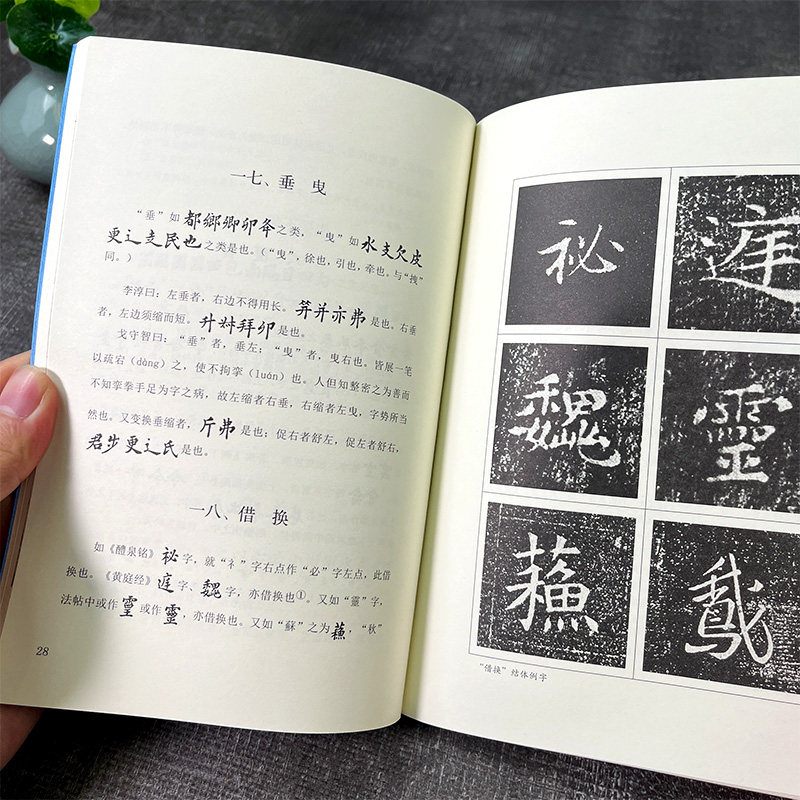 一七、垂 曳
“垂”如都鄉卿卯夅之类，“曳”如水支欠皮
更辶走民也之类是也。（“曳”，徐也，引也，牵也。与“拽”
同。）
李淳曰：左垂者，右边不得用长。笄并亦弗是也。右垂
者，左边须缩而短。升拜卯是也。
戈守智曰：“垂”者，垂左；“曳”者，曳右也。皆展一笔
以疏宕（dàng）之，使不拘挛（luán）也。人但知整密之为善而
不知挛拳手足为字之病，故左缩者右垂，右缩者左曳，字势所当
然也。又变换垂缩者，斤弗是也；促右者舒左，促左者舒右，
君步更辶民是也。
一八、借 换
如《醴泉铭》祕字，就“礻”字右点作“必”字左点，此借
换也。《黄庭经》字、魏字，亦借换也①。又如“靈”字，
法帖中或作或作靈，亦借换也。又如“蘇”之为蘓，“秋”
28
祕
魏
靈
蘓
鵞
“借换”结体例字